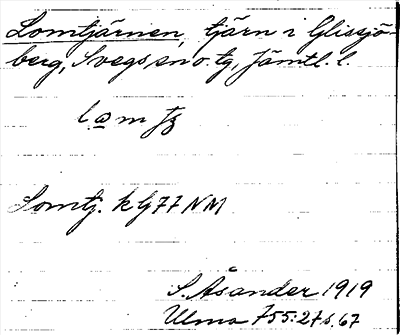 Lomtjärnen, tjärn i Glissjö-
berg, Svegs sn o. tg, Jämtl. l.
Lomtj. k G77 NM
S. Åsander 1919
Ulma 755:27 s. 67